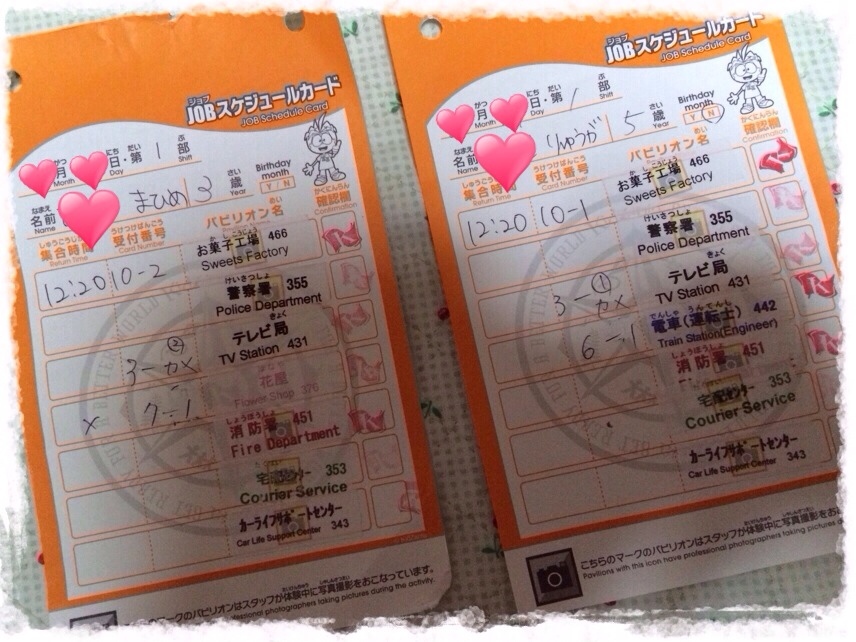 ジョブ
JOBスケジュールカード
JOB Schedule Card
がつ にち だい ぶ
月 日・第 1 部
Month Day Shift
なまえ さい
名前 まひめ 3 歳
Name Year
Birthday month
Y / N
かくにんらん
確認欄
Confirmation
しゅうごうじかん
集合時間
Return Time
うけつけばんごう
受付番号
Card Number
めい
パビリオン名
12:20 10-2
お菓子工場 466
Sweets Factory
けいさつしょ
警察署 355
Police Department
きょく
テレビ局
TV Station 431
② 3-カメ
はなや
花屋
Flower Shop 376
× 7-1
しょうぼうしょ
消防署 451
Fire Department
宅配センター 353
Courier Service
カーライフサポートセンター
Car Life Support Center 343
マークのパビリオンはスタッフが体験中に写真撮影をおこなっています。
professional photographers taking pictures during the activity.
ジョブ
JOBスケジュールカード
JOB Schedule Card
がつ にち だい ぶ
月 日・第 1 部
Month Day Shift
なまえ さい
名前 りゅうが 5 歳
Name Year
Birthday month
Y N
かくにんらん
確認欄
Confirmation
しゅうごうじかん
集合時間
Return Time
うけつけばんごう
受付番号
Card Number
めい
パビリオン名
12:20 10-1
お菓子工場 466
Sweets Factory
けいさつしょ
警察署 355
Police Department
きょく
テレビ局
TV Station 431
① 3-カメ
でんしゃ うんてんし
電車(運転士) 442
Train Station(Engineer)
6-1
しょうぼうしょ
消防署 451
宅配センター 353
Courier Service
カーライフサポートセンター
Car Life Support Center 343
こちらのマークのパビリオンはスタッフが体験中に写真撮影をお
Pavilions with this icon have professional photographers taking pictures